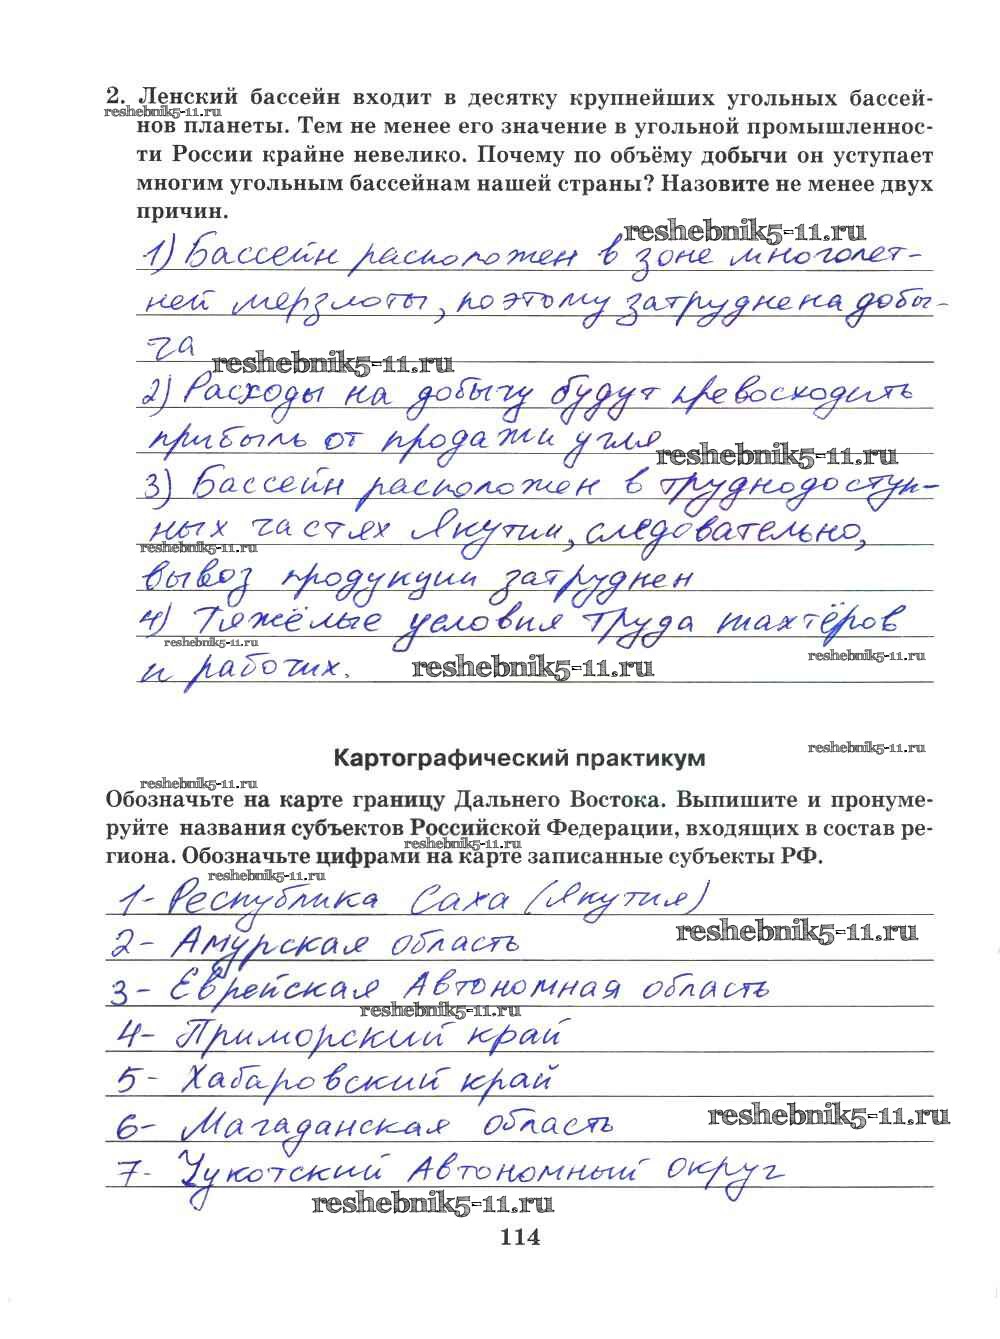 2. Ленский бассейн входит в десятку крупнейших угольных бассей-
reshebnik5-11.ru
нов планеты. Тем не менее его значение в угольной промышленнос-
ти России крайне невелико. Почему по объёму добычи он уступает
многим угольным бассейнам нашей страны? Назовите не менее двух
причин.
reshebnik5-11.ru
1) Бассейн расположен в зоне многолет-
ней мерзлоты, поэтому затруднена добы-
ча
reshebnik5-11.ru
2) Расходы на добычу будут превосходить
прибыль от продажи угля
reshebnik5-11.ru
3) Бассейн расположен в труднодоступ-
ных частях Якутии, следовательно,
reshebnik5-11.ru
вывоз продукции затруднен
4) Тяжёлые условия труда шахтёров
reshebnik5-11.ru
и рабочих.
reshebnik5-11.ru
reshebnik5-11.ru
Картографический практикум
reshebnik5-11.ru
reshebnik5-11.ru
Обозначьте на карте границу Дальнего Востока. Выпишите и пронуме-
руйте названия субъектов Российской Федерации, входящих в состав ре-
reshebnik5-11.ru
гиона. Обозначьте цифрами на карте записанные субъекты РФ.
reshebnik5-11.ru
1- Республика Саха (Якутия)
reshebnik5-11.ru
2- Амурская область
3- Еврейская Автономная область
reshebnik5-11.ru
4- Приморский край
5- Хабаровский край
6- Магаданская область
reshebnik5-11.ru
7- Чукотский Автономный округ
reshebnik5-11.ru
114